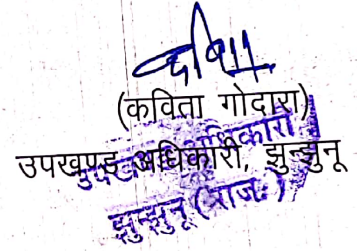 कविता
(कविता गोदारा)
उपखण्ड अधिकारी, झुन्झुनू
उपखण्ड अधिकारी
झुन्झुनू (राज.)